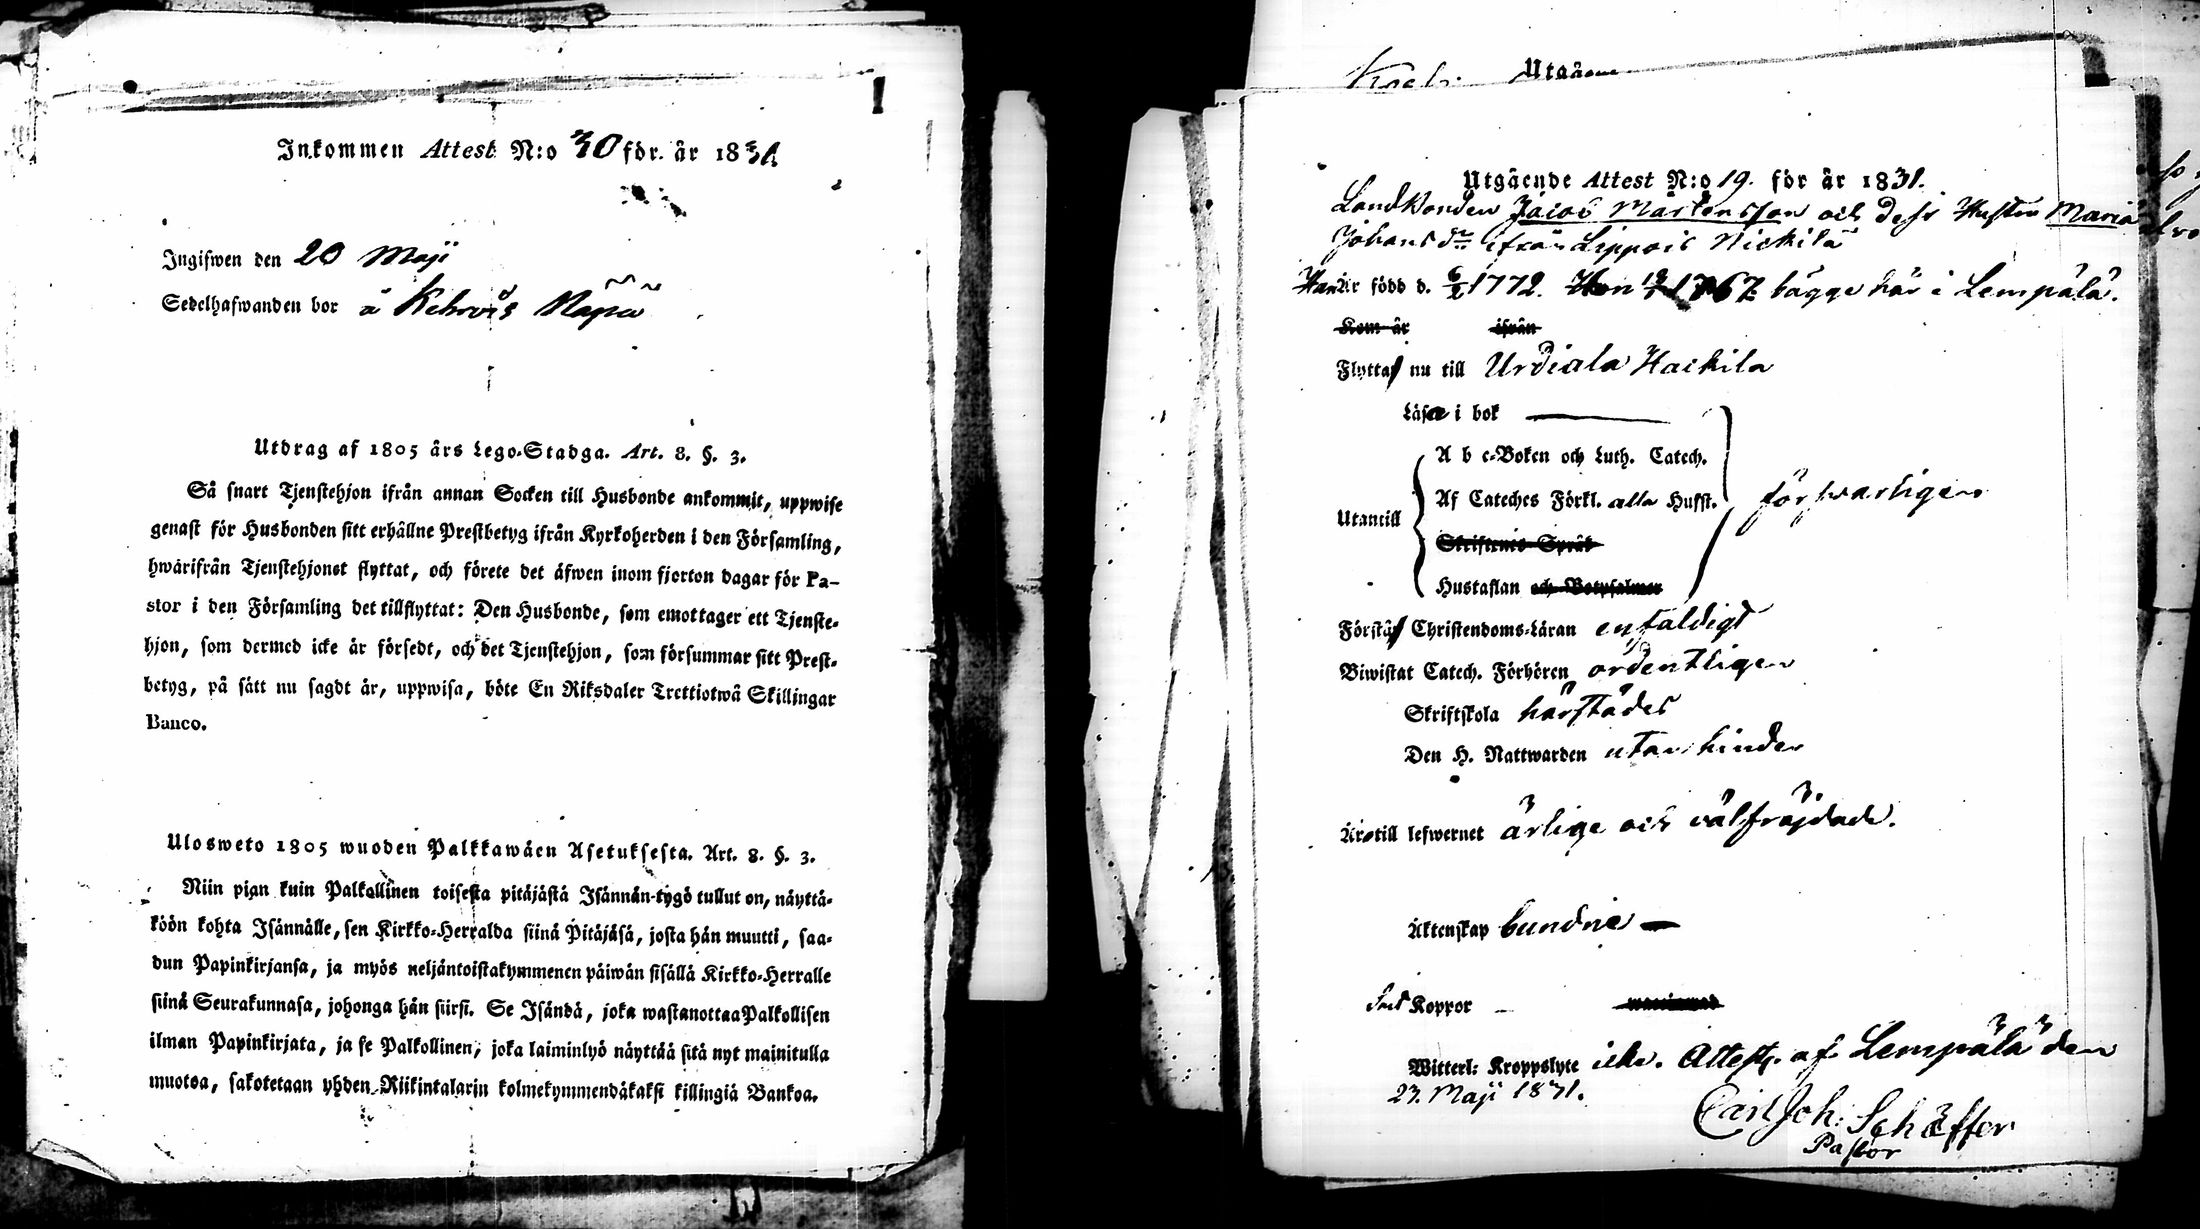 Inkommen Attest N:o 30 för år 1831
Ingifwen den 20 Maji
Sedelhafwanden bor å
Utdrag af 1805 års Lego-Stadga. Art. 8. §. 3.
Så snart Tjenstehjon ifrån annan Socken till Husbonde ankommit, uppwise
genast för Husbonden sitt erhållne Prestbetyg ifrån Kyrkoherden i den Församling,
hwarifrån Tjenstehjonet flyttat, och förete det äfwen inom fjorton dagar för Pa-
stor i den Församling det tillflyttat: Den Husbonde, som emottager ett Tjenste-
hjon, som dermed icke är försedt, och det Tjenstehjon, som försummar sitt Prest-
betyg, på sätt nu sagdt är, uppwisa, böte En Riksdaler Trettiotwå Skillingar
Banco.
Ulosweto 1805 wuoden Palkkawäen Asetuksesta. Art. 8. §. 3.
Niin pian kuin Palkollinen toisesta pitäjästä Isännän-tygö tullut on, näyttä-
köön kohta Isännälle, sen Kirkko-Herralda siinä Pitäjäsä, josta hän muutti, saa-
dun Papinkirjansa, ja myös neljäntoistakymmenen päiwän sisällä Kirkko-Herralle
siinä Seurakunnasa, johonga hän siirsi. Se Isändä, joka wastanottaa Palkollisen
ilman Papinkirjata, ja se Palkollinen, joka laiminlyö näyttää sitä nyt mainitulla
muotoa, sakotetaan yhden Riikintalarin kolmekymmendäkaksi killingiä Bankoa.
Utgående Attest N:o 19. för år 1831.
Landbonden Jacob Mårtensson och dess Hustru Maria
Johansdr ifrån Lippois Nickilä
Han är född d. 6/2 1772. Hon 1767 bägge här i Lempälä.
Kom år ifrån
Flytta nu till Urdiala Haikila
Läsa i bok
A b c-Boken och Luth. Catech.
Af Cateches Förkl. alla Hufst. försvarligen
Utantill
Skriftenes Språk
Hustaflan och Botpsalmer
Förstå Christendoms-Läran enfaldigt
Biwistat Catech. Förhören ordentligen
Skriftskola härstädes
Den H. Nattwarden utan hinder
Äro till lefwernet ärlige och välfräjdade.
Äktenskap bundne
haft Koppor
Witterl: Kroppslyte icke. Attest. af Lempälä den
23. Maji 1831.
Carl Joh: Schæffer
Pastor